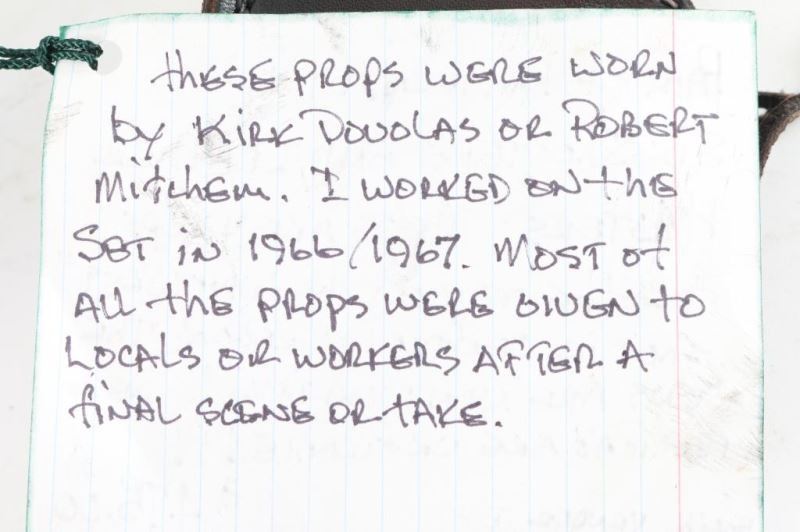 these props were worn
by Kirk Douglas or Robert
Mitchem. I worked on the
set in 1966/1967. Most of
all the props were given to
locals or workers after a
final scene or take.